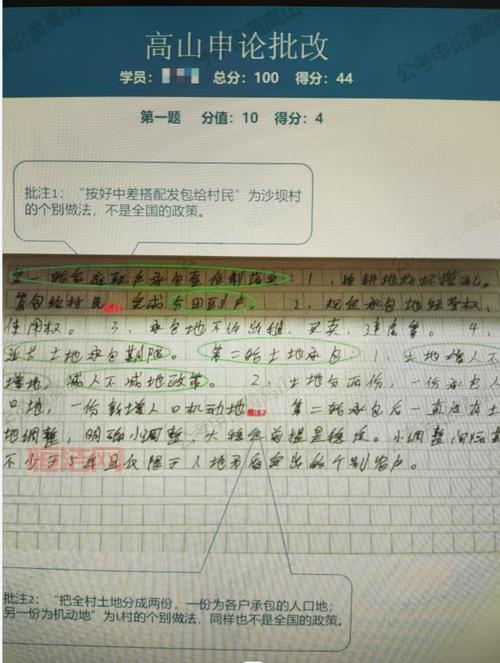 公考申论黄高山
高山申论批改
学员： 总分：100 得分：44
第一题 分值：10 得分：4
批注1：“按好中差搭配发包给村民”为沙坝村
的个别做法，不是全国的政策。
第一轮家庭联产承包责任制落实：1、由耕地好坏搭配
发包给村民，完成分田到户 2、规定承包地经营权，
使用权。 3、承包地不许出租、买卖、建房等。 4、
延长土地承包期限。 第二轮土地承包 1、土地增人不
增地，减人不减地政策。 2、土地分两份，一份承包人
口地，一份新增人口机动地 第二轮承包后一直没有土
地调整，明确小调整，大稳定前提是稳定。小调整间隔
不少于5年且仅限于人地矛盾突出的个别农户。
批注2：“把全村土地分成两份，一份为各户承包的人口地；
另一份为机动地”为L村的个别做法，同样也不是全国的政策。